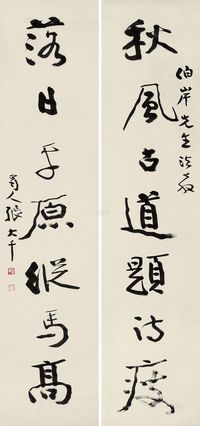 秋風古道題詩瘦
伯岸先生法教
落日平原縱馬高
蜀人張大千